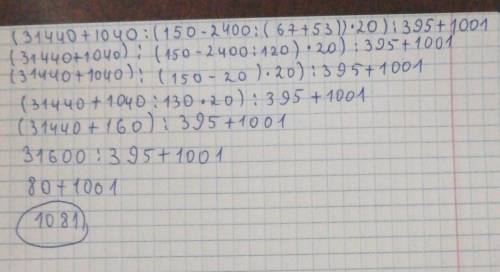 (31440+1040:(150-2400:(67+53))·20):395+1001
(31440+1040):(150-2400:120)·20):395+1001
(31440+1040):(150-20)·20):395+1001
(31440+1040:130·20):395+1001
(31440+160):395+1001
31600:395+1001
80+1001
1081